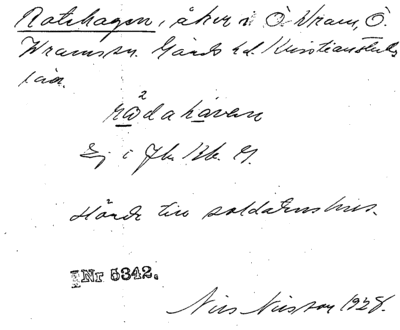 Rotehagen, åker i Ö. Wram, Ö.
Wrams sn. Gärds hd. Kristianstads
län.
2
rådahåven
Ej i Jb. Kb. M.
Hörde till soldatens hus.
Nr 5342.
Nils Nilsson 1928.